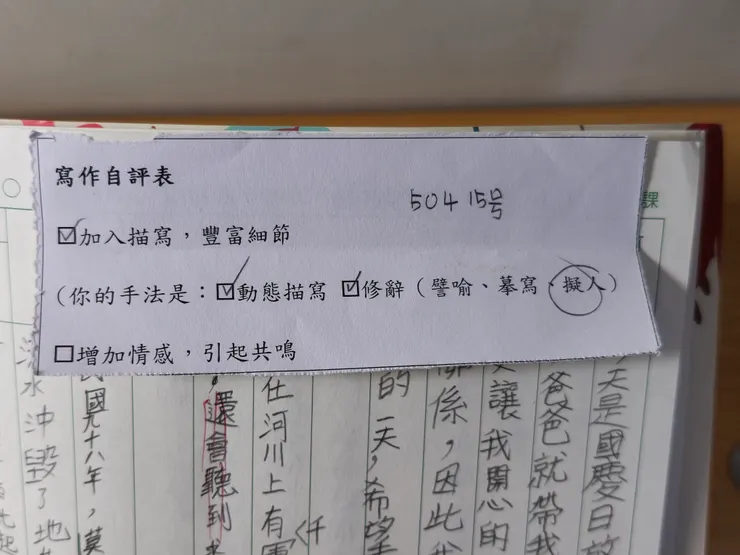 寫作自評表
504 15号
☑加入描寫，豐富細節
（你的手法是：☑動態描寫 ☑修辭（譬喻、摹寫、擬人）
☐增加情感，引起共鳴
課
天是國慶日放
爸爸就帶我
讓我開心的
係，因此我
的一天，希望
在河川上有
仟
還會聽到
民國九十八年，莫
水沖毀了地